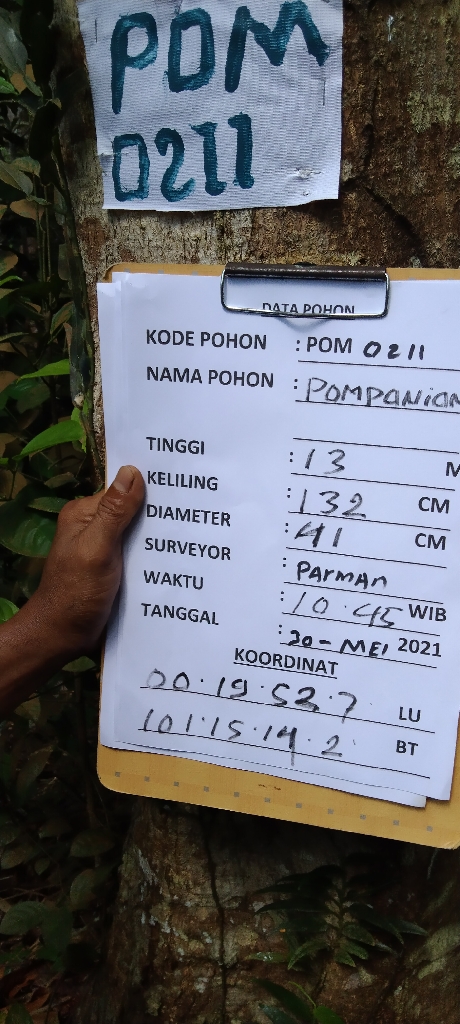 POM
0211
DATA POHON
KODE POHON : POM 0211
NAMA POHON : POMPANION
TINGGI : 13 M
KELILING : 132 CM
DIAMETER : 41 CM
SURVEYOR : PARMAN
WAKTU : 10.45 WIB
TANGGAL : 20-MEI 2021
KOORDINAT
00.19.53.7 LU
101.15.14.2 BT